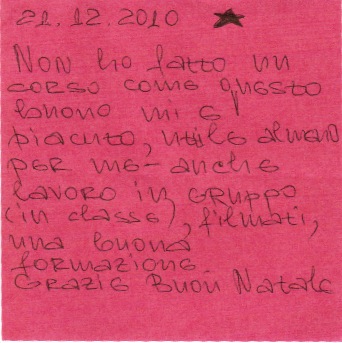 21.12.2010
Non ho fatto un
corso come questo
buono mi è
piaciuto, utile almeno
per me - anche
lavoro in gruppo
(in classe), filmati,
una buona
formazione
Grazie Buon Natale